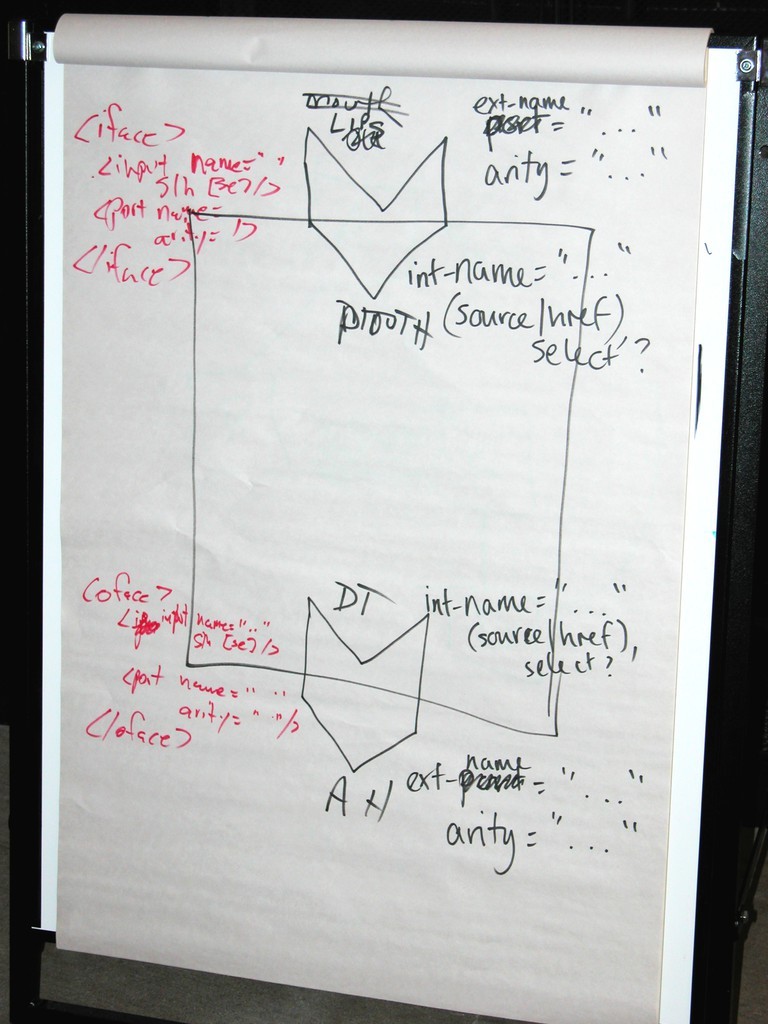 <iface>
<input name=" "
s/h [se]/>
<port name=
arity= />
</iface>
Lips
ext-name
= "..."
arity = "..."
int-name = "...."
(source/href)
select?
<oface>
input name=".."
s/h [se]/>
<port name=" "
arity=" "/>
</oface>
DT
int-name = "..."
(source/href),
select?
AH
name
ext- = "..."
arity = "..."